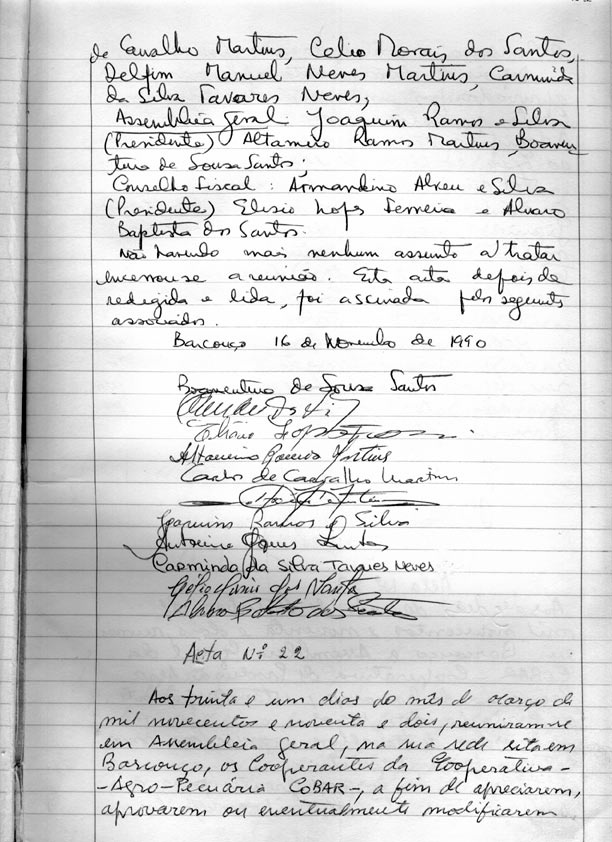 de Carvalho Martins, Celio Morais dos Santos,
Delfim Manuel Neves Martins, Carminda
da Silva Tavares Neves,
Assembleia Geral: Joaquim Ramos e Silva
(Presidente) Altamiro Ramos Martins, Boaven-
tura de Sousa Santos;
Conselho Fiscal: Armandino Abreu e Silva
(Presidente) Elisio Lopes Ferreira e Alvaro
Baptista dos Santos.
Não havendo mais nenhum assunto a tratar
encerrou-se a reunião. Esta acta depois de
redigida e lida, foi assinada pelos seguintes
associados.
Barcouço 16 de Novembro de 1990
Boaventura de Sousa Santos
Altamiro Ramos Martins
Carlos de Carvalho Martins
Joaquim Ramos e Silva
Carminda da Silva Tavares Neves
Célio Morais dos Santos
Alvaro Baptista dos Santos
Acta Nº 22
Aos trinta e um dias do mês de Março de
mil novecentos e noventa e dois, reuniram-se
em Assembleia Geral, na sua sede sita em
Barcouço, os Cooperantes da Cooperativa-
-Agro-Pecuária COBAR-, a fim de apreciarem,
aprovarem ou eventualmente modificarem